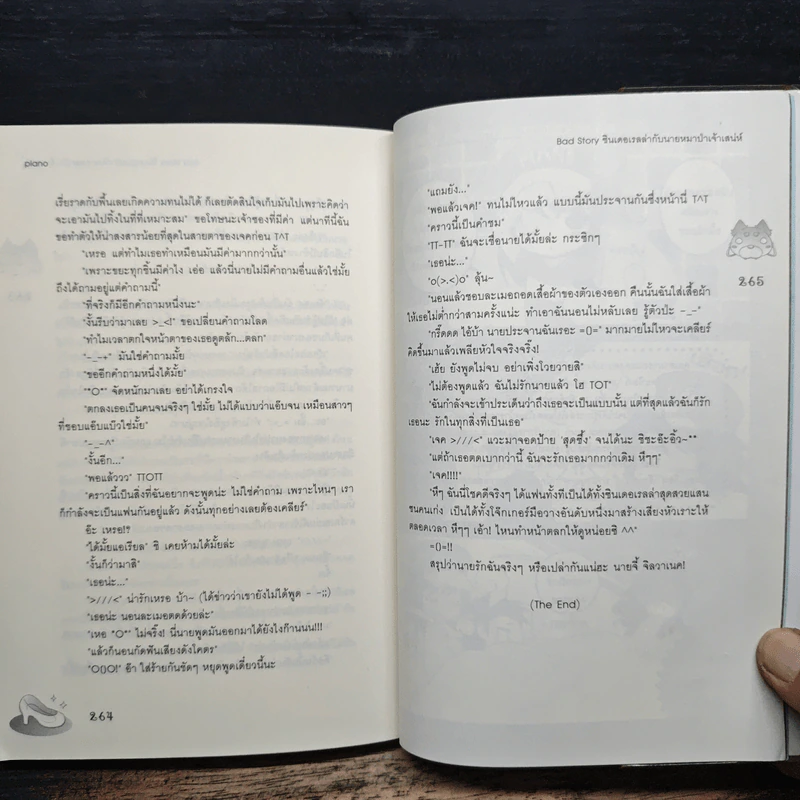 piano
เรี่ยราดกับพื้นเลยเกิดความทนไม่ได้ ก็เลยตัดสินใจเก็บมันไปเพราะคิดว่า
จะเอามันไปทิ้งในที่ที่เหมาะสม" ขอโทษนะเจ้าซองที่มีค่า แต่นาทีนี้ฉัน
ขอทำตัวให้น่าสงสารน้อยที่สุดในสายตาของเจคก่อน T^T
"เหรอ แต่ทำไมเธอทำเหมือนมันมีค่ามากกว่านั้น"
"เพราะขยะทุกชิ้นมีค่าไง เอ่อ แล้วนี่นายไม่มีคำถามอื่นแล้วใช่มั้ย
ถึงได้ถามอยู่แต่คำถามนี้"
"ที่จริงก็มีอีกคำถามหนึ่งนะ"
"งั้นรีบว่ามาเลย >_<!" ขอเปลี่ยนคำถามโลด
"ทำไมเวลาตกใจหน้าตาของเธอดูตลัก...ตลก"
"-_-+" มันใช่คำถามมั้ย
"ขออีกคำถามหนึ่งได้มั้ย"
"*O*" จัดหนักมาเลย อย่าได้เกรงใจ
"ตกลงเธอเป็นคนจนจริงๆ ใช่มั้ย ไม่ได้แบบว่าแอ๊บจน เหมือนสาวๆ
ที่ชอบแอ๊บแบ๊วใช่มั้ย"
"-_-^"
"งั้นอีก..."
"พอแล้ววว" TTOTT
"คราวนี้เป็นสิ่งที่ฉันอยากจะพูดน่ะ ไม่ใช่คำถาม เพราะไหนๆ เรา
ก็กำลังจะเป็นแฟนกันอยู่แล้ว ดังนั้นทุกอย่างเลยต้องเคลียร์"
อ๊ะ เหรอ!?
"ได้มั้ยแอเรียล" ชิ เคยห้ามได้มั้ยล่ะ
"งั้นก็ว่ามาสิ"
"เธอน่ะ..."
">///<" น่ารักเหรอ บ้า~ (ได้ข่าวว่าเขายังไม่ได้พูด - -;;)
"เธอน่ะ นอนละเมอตดด้วยล่ะ"
"เหอ *O*" ไม่จริ๊ง! นี่นายพูดมันออกมาได้ยังไงก๊านนน!!!
"แล้วก็นอนกัดฟันเสียงดังโคตร"
"O[]O!" อ๊า ใส่ร้ายกันชัดๆ หยุดพูดเดี๋ยวนี้นะ
264
Bad Story ซินเดอเรลล่ากับนายหมาบ้าเจ้าเสน่ห์
"แถมยัง..."
"พอแล้วเจค!" ทนไม่ไหวแล้ว แบบนี้มันประจานกันซึ่งหน้านี่ T^T
"คราวนี้เป็นคำชม"
"TT-TT" ฉันจะเชื่อนายได้มั้ยล่ะ กระซิกๆ
"เธอน่ะ..."
"o(>.<)o" ลุ้น~
"นอนแล้วชอบละเมอถอดเสื้อผ้าของตัวเองออก คืนนั้นฉันใส่เสื้อผ้า
ให้เธอไม่ต่ำกว่าสามครั้งแน่ะ ทำเอาฉันนอนไม่หลับเลย รู้ตัวป่ะ -_-"
"กรี๊ดดด ไอ้บ้า นายประจานฉันเรอะ =[]=" มากมายไม่ไหวจะเคลียร์
คิดขึ้นมาแล้วเพลียหัวใจจริงจริ๊ง!
"เฮ้ย ยังพูดไม่จบ อย่าเพิ่งโวยวายสิ"
"ไม่ต้องพูดแล้ว ฉันไม่รักนายแล้ว โฮ TOT"
"ฉันกำลังจะเข้าประเด็นว่าถึงเธอจะเป็นแบบนั้น แต่ที่สุดแล้วฉันก็รัก
เธอนะ รักในทุกสิ่งที่เป็นเธอ"
"เจค >///<" แวะมาจอดป้าย 'สุดซึ้ง' จนได้นะ ชิชะอ๊ะอิ้ว~**
"แต่ถ้าเธอตดเบากว่านี้ ฉันจะรักเธอมากกว่าเดิม หึๆๆ"
"เจค!!!!"
"หึๆ ฉันนี่โชคดีจริงๆ ได้แฟนทั้งทีเป็นได้ทั้งซินเดอเรลล่าสุดสวยแสน
ซนคนเก่ง เป็นได้ทั้งโจ๊กเกอร์มือวางอันดับหนึ่งมาสร้างเสียงหัวเราะให้
ตลอดเวลา หึๆๆ เอ้า! ไหนทำหน้าตลกให้ดูหน่อยซิ ^^"
=[]=!!
สรุปว่านายรักฉันจริงๆ หรือเปล่ากันแน่ฮะ นายจี้ จิลวาเนค!
(The End)
265